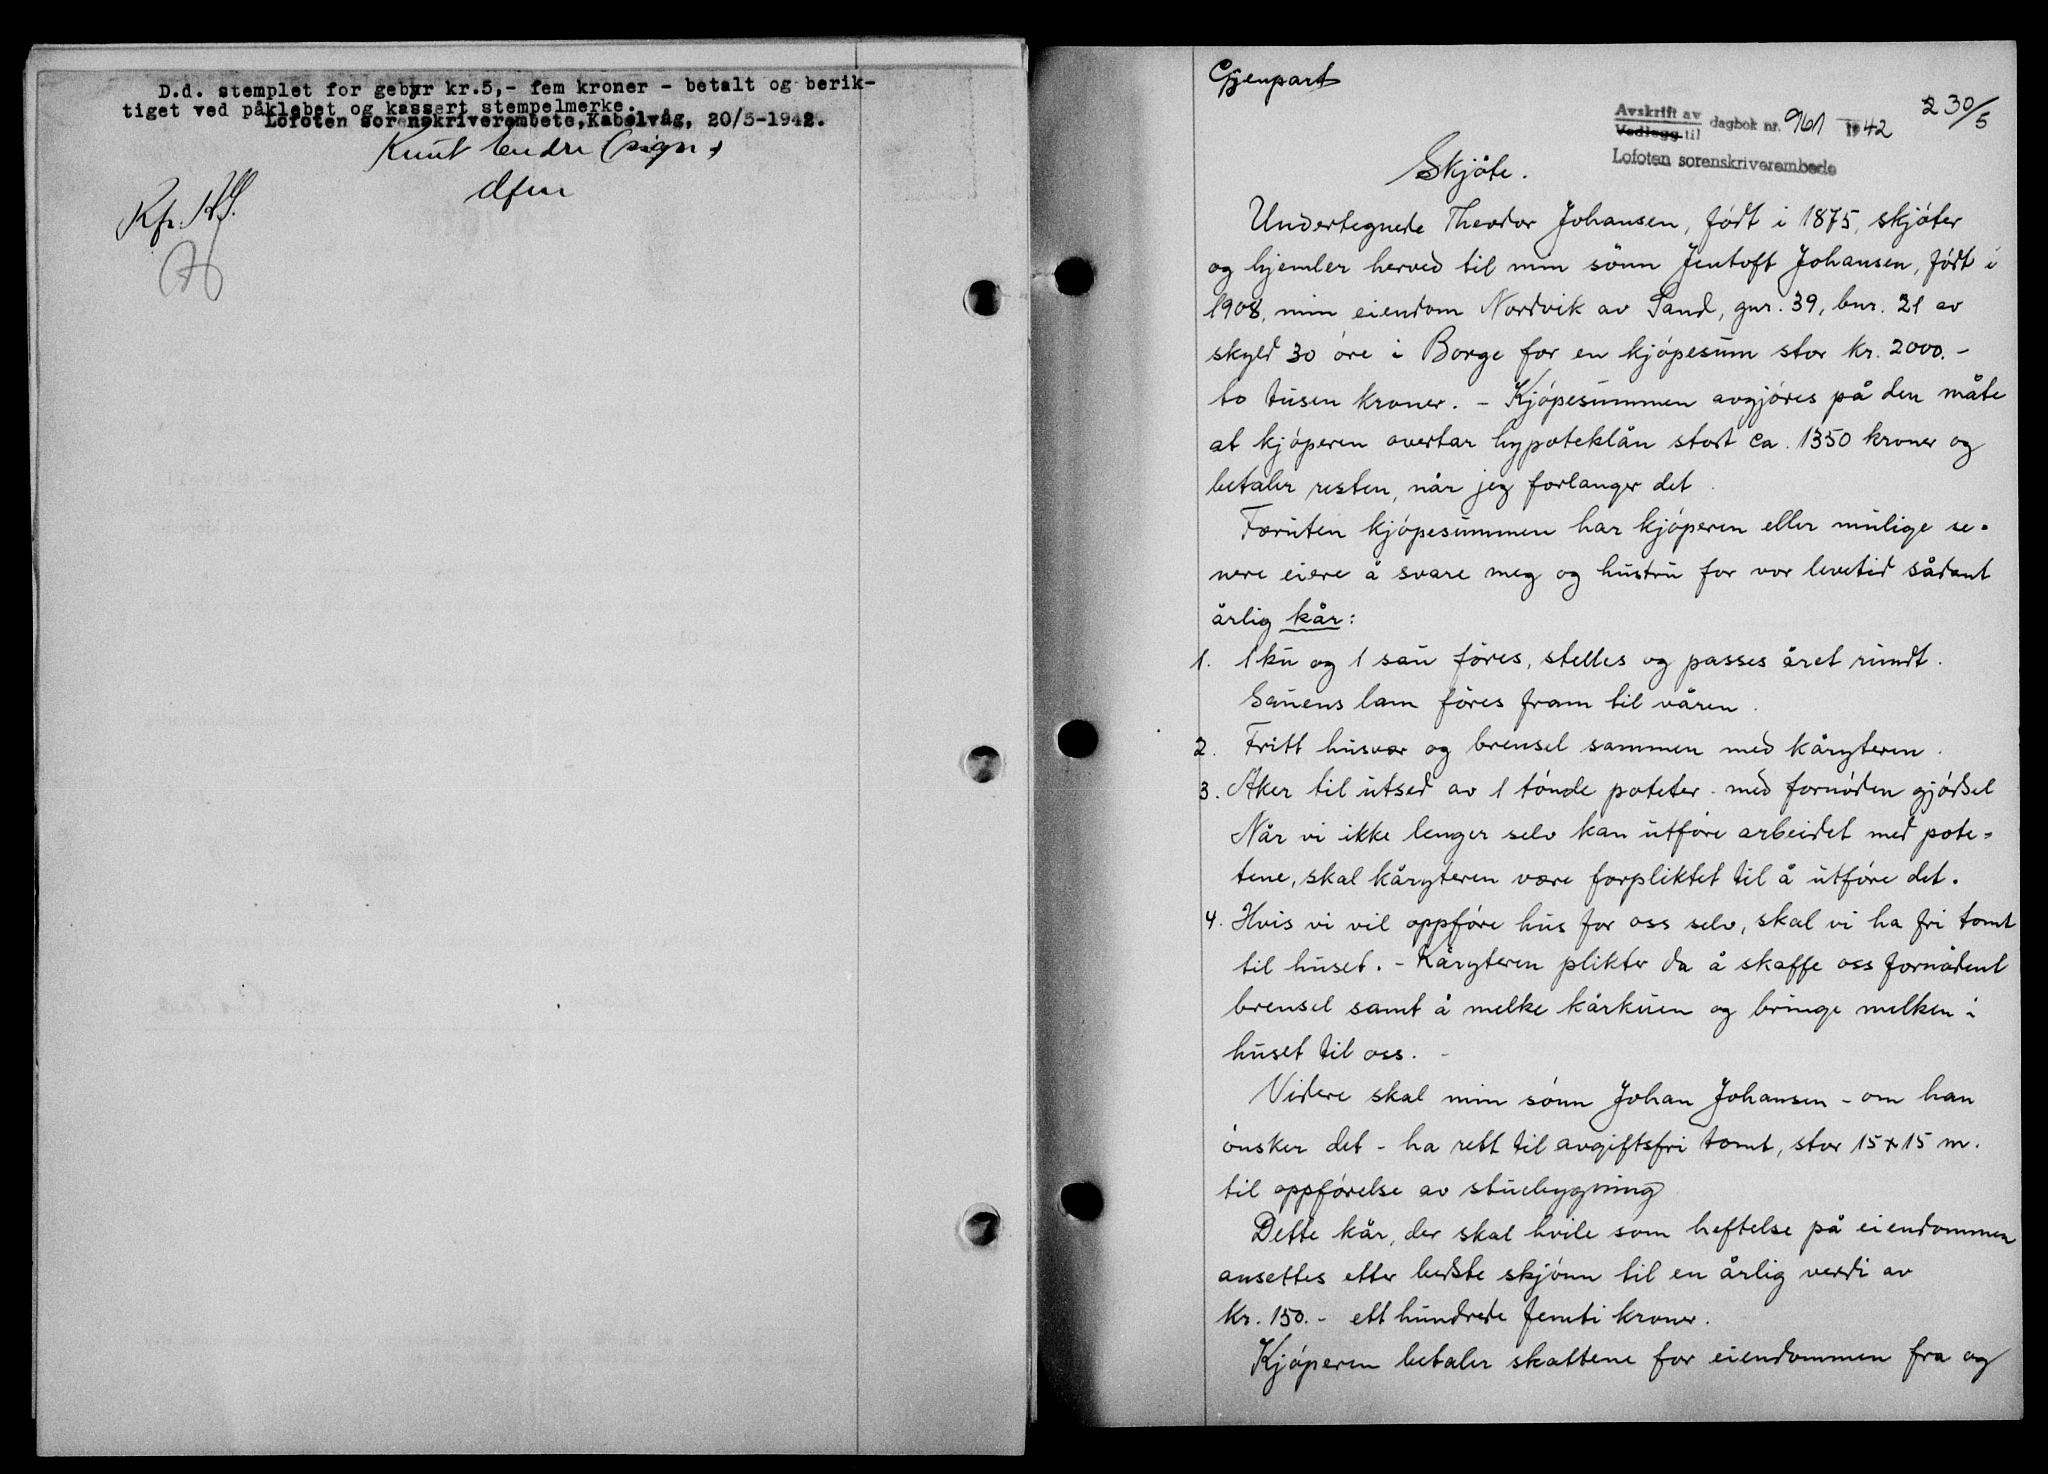 D.d. stemplet for gebyr kr.5,- fem kroner - betalt og berik-
tiget ved påklebet og kassert stempelmerke.
Lofoten sorenskriverembete, Kabelvåg, 20/5-1942.
Knut Endre (sign)
Kfr.
Gjenpart
Avskrift av
Vedlegg til
dagbok nr. 961 1942
30/5
Lofoten sorenskriverembede
Skjöte.
Undertegnede Theodor Johansen, född i 1875, skjöter
og hjemler herved til min sönn Jentoft Johansen, född i
1908, min eiendom Nordvik av Sand, gnr. 39, bnr. 21 av
skyld 30 öre i Borge for en kjöpesum stor kr. 2000.-
to tusen kroner. - Kjöpesummen avgjöres på den måte
at kjöperen overtar hypoteklån stort ca. 1350 kroner og
betaler resten, når jeg forlanger det.
Foruten kjöpesummen har kjöperen eller mulige se-
nere eiere å svare meg og hustru for vor levetid sådant
årlig kår:
1. 1 ku og 1 sau föres, stelles og passes året rundt.
Sauens lam föres fram til våren.
2. Fritt husvær og brensel sammen med kåryteren.
3. Aker til utsed av 1 tönde poteter med fornöden gjödsel
Når vi ikke lenger selv kan utföre arbeidet med pote-
tene, skal kåryteren være forpliktet til å utföre det.
4. Hvis vi vil oppföre hus for oss selv, skal vi ha fri tomt
til huset. - Kåryteren plikter da å skaffe oss fornödent
brensel samt å melke kårkuen og bringe melken i
huset til oss. -
Videre skal min sönn Johan Johansen - om han
önsker det - ha rett til avgiftsfri tomt, stor 15x15 m.
til oppförelse av stuebygning
Dette kår, der skal hvile som heftelse på eiendommen
ansettes etter bedste skjönn til en årlig verdi av
kr. 150.- ett hundrede femti kroner.
Kjöperen betaler skattene for eiendommen fra og